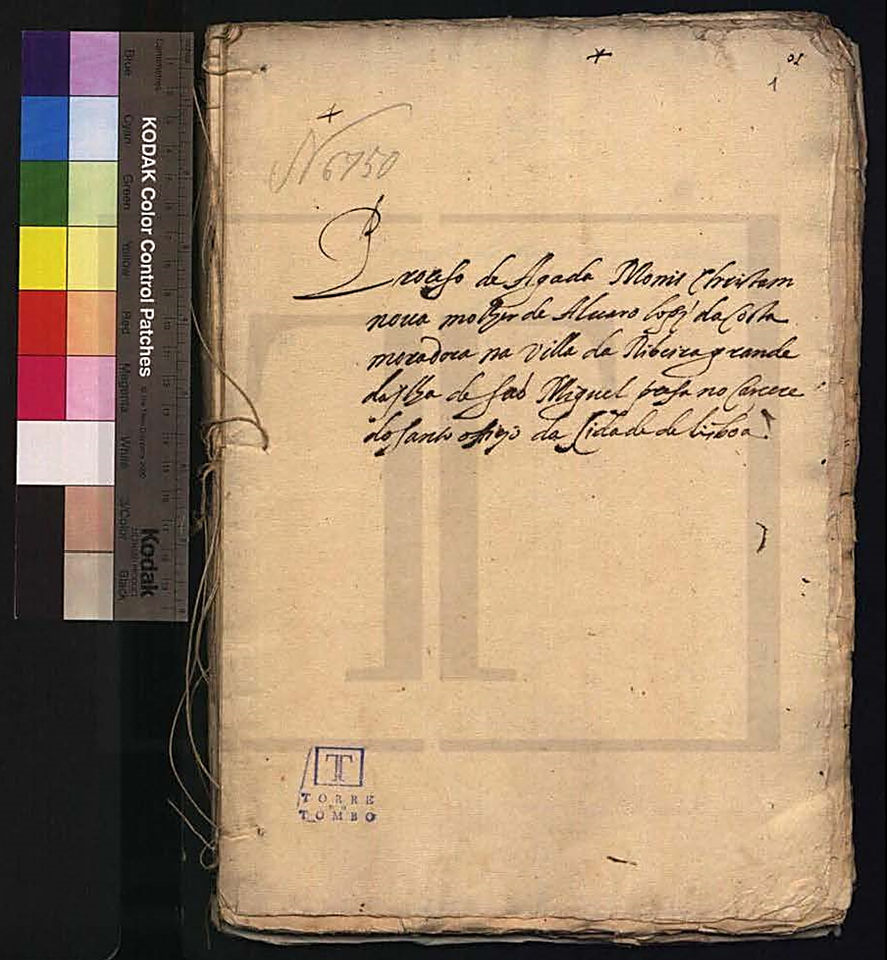 01
1
N 6750
Processo de Agada Monis Christam
noua molher de Aluaro lopz da Costa
moradora na Villa da Ribeira grande
da Ilha de saõ Miguel presa no Carcere
do santo offiçio da Cidade de lisboa.
T
TORRE
TOMBO
KODAK Color Control Patches
Kodak
Blue
Cyan
Green
Yellow
Red
Magenta
White
3/Color
Black